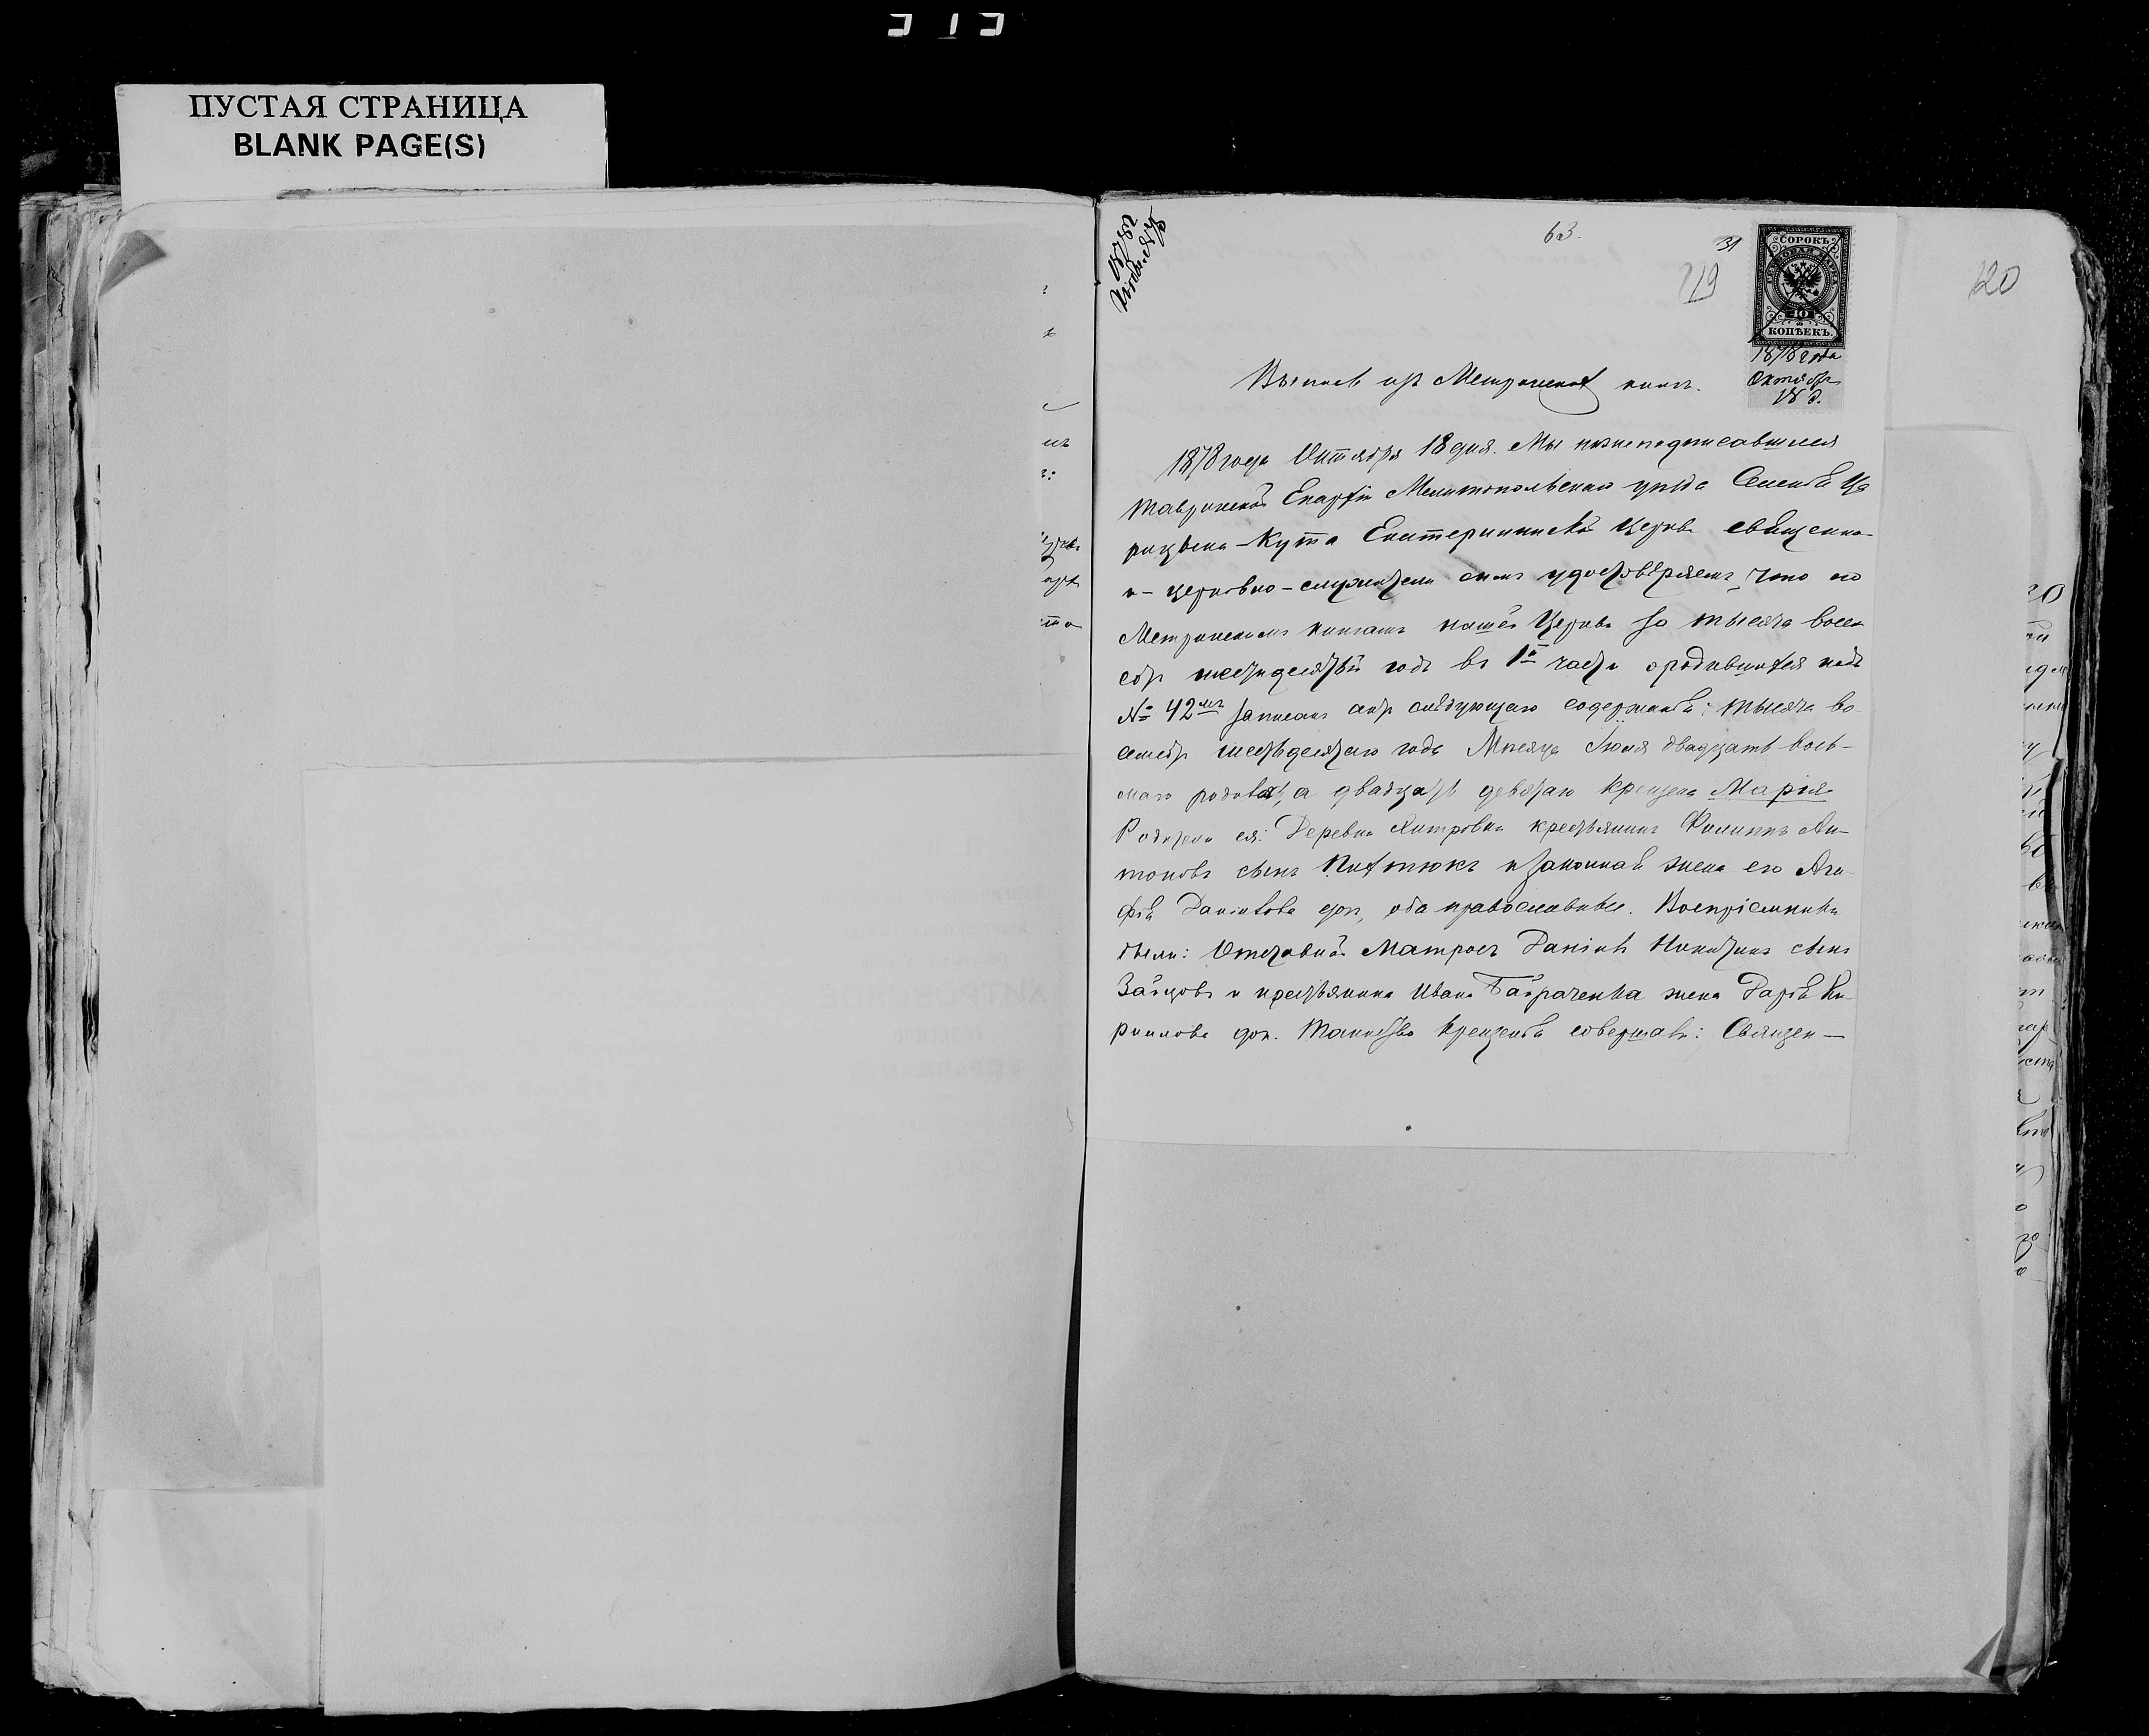 ПУСТАЯ СТРАНИЦА
BLANK PAGE(S)
63.
31
119
120
СОРОКЪ
ГЕРБОВАЯ МАРКА
40
КОПѢЕКЪ.
1878 года
Октября
18 д.
Выпись изъ Метрической книги.
1878 года Октября 18 дня. Мы нижеподписавшіеся
Таврической Епархіи Мелитопольскаго уѣзда Селенія Ца
рицына-Кута Екатерининской Церкви священно-
и-церковно-служители симъ удостовѣряемъ, что по
Метрическимъ книгамъ нашей Церкви за тысяча восем
сотъ шестидесятый годъ въ 1й части о родившихся подъ
№ 42мъ записанъ актъ слѣдующаго содержанія: тысяча во
семсотъ шестьдесятаго года Мѣсяца Іюля двадцать вось-
маго родилась, а двадцать девятаго крещена Марія
Родители ея: Деревни Янтровки крестьянинъ Филиппъ Ан-
тоновъ сынъ Пихтюкъ и законная жена его Ага-
фія Даніилова доч, оба православные. Воспріемники
были: Отставной Матросъ Даніилъ Никитинъ сынъ
Зайцовъ и крестьянина Ивана Байраченка жена Дарія Ки-
рилова доч. Таинство крещенія совершалъ: Священ-